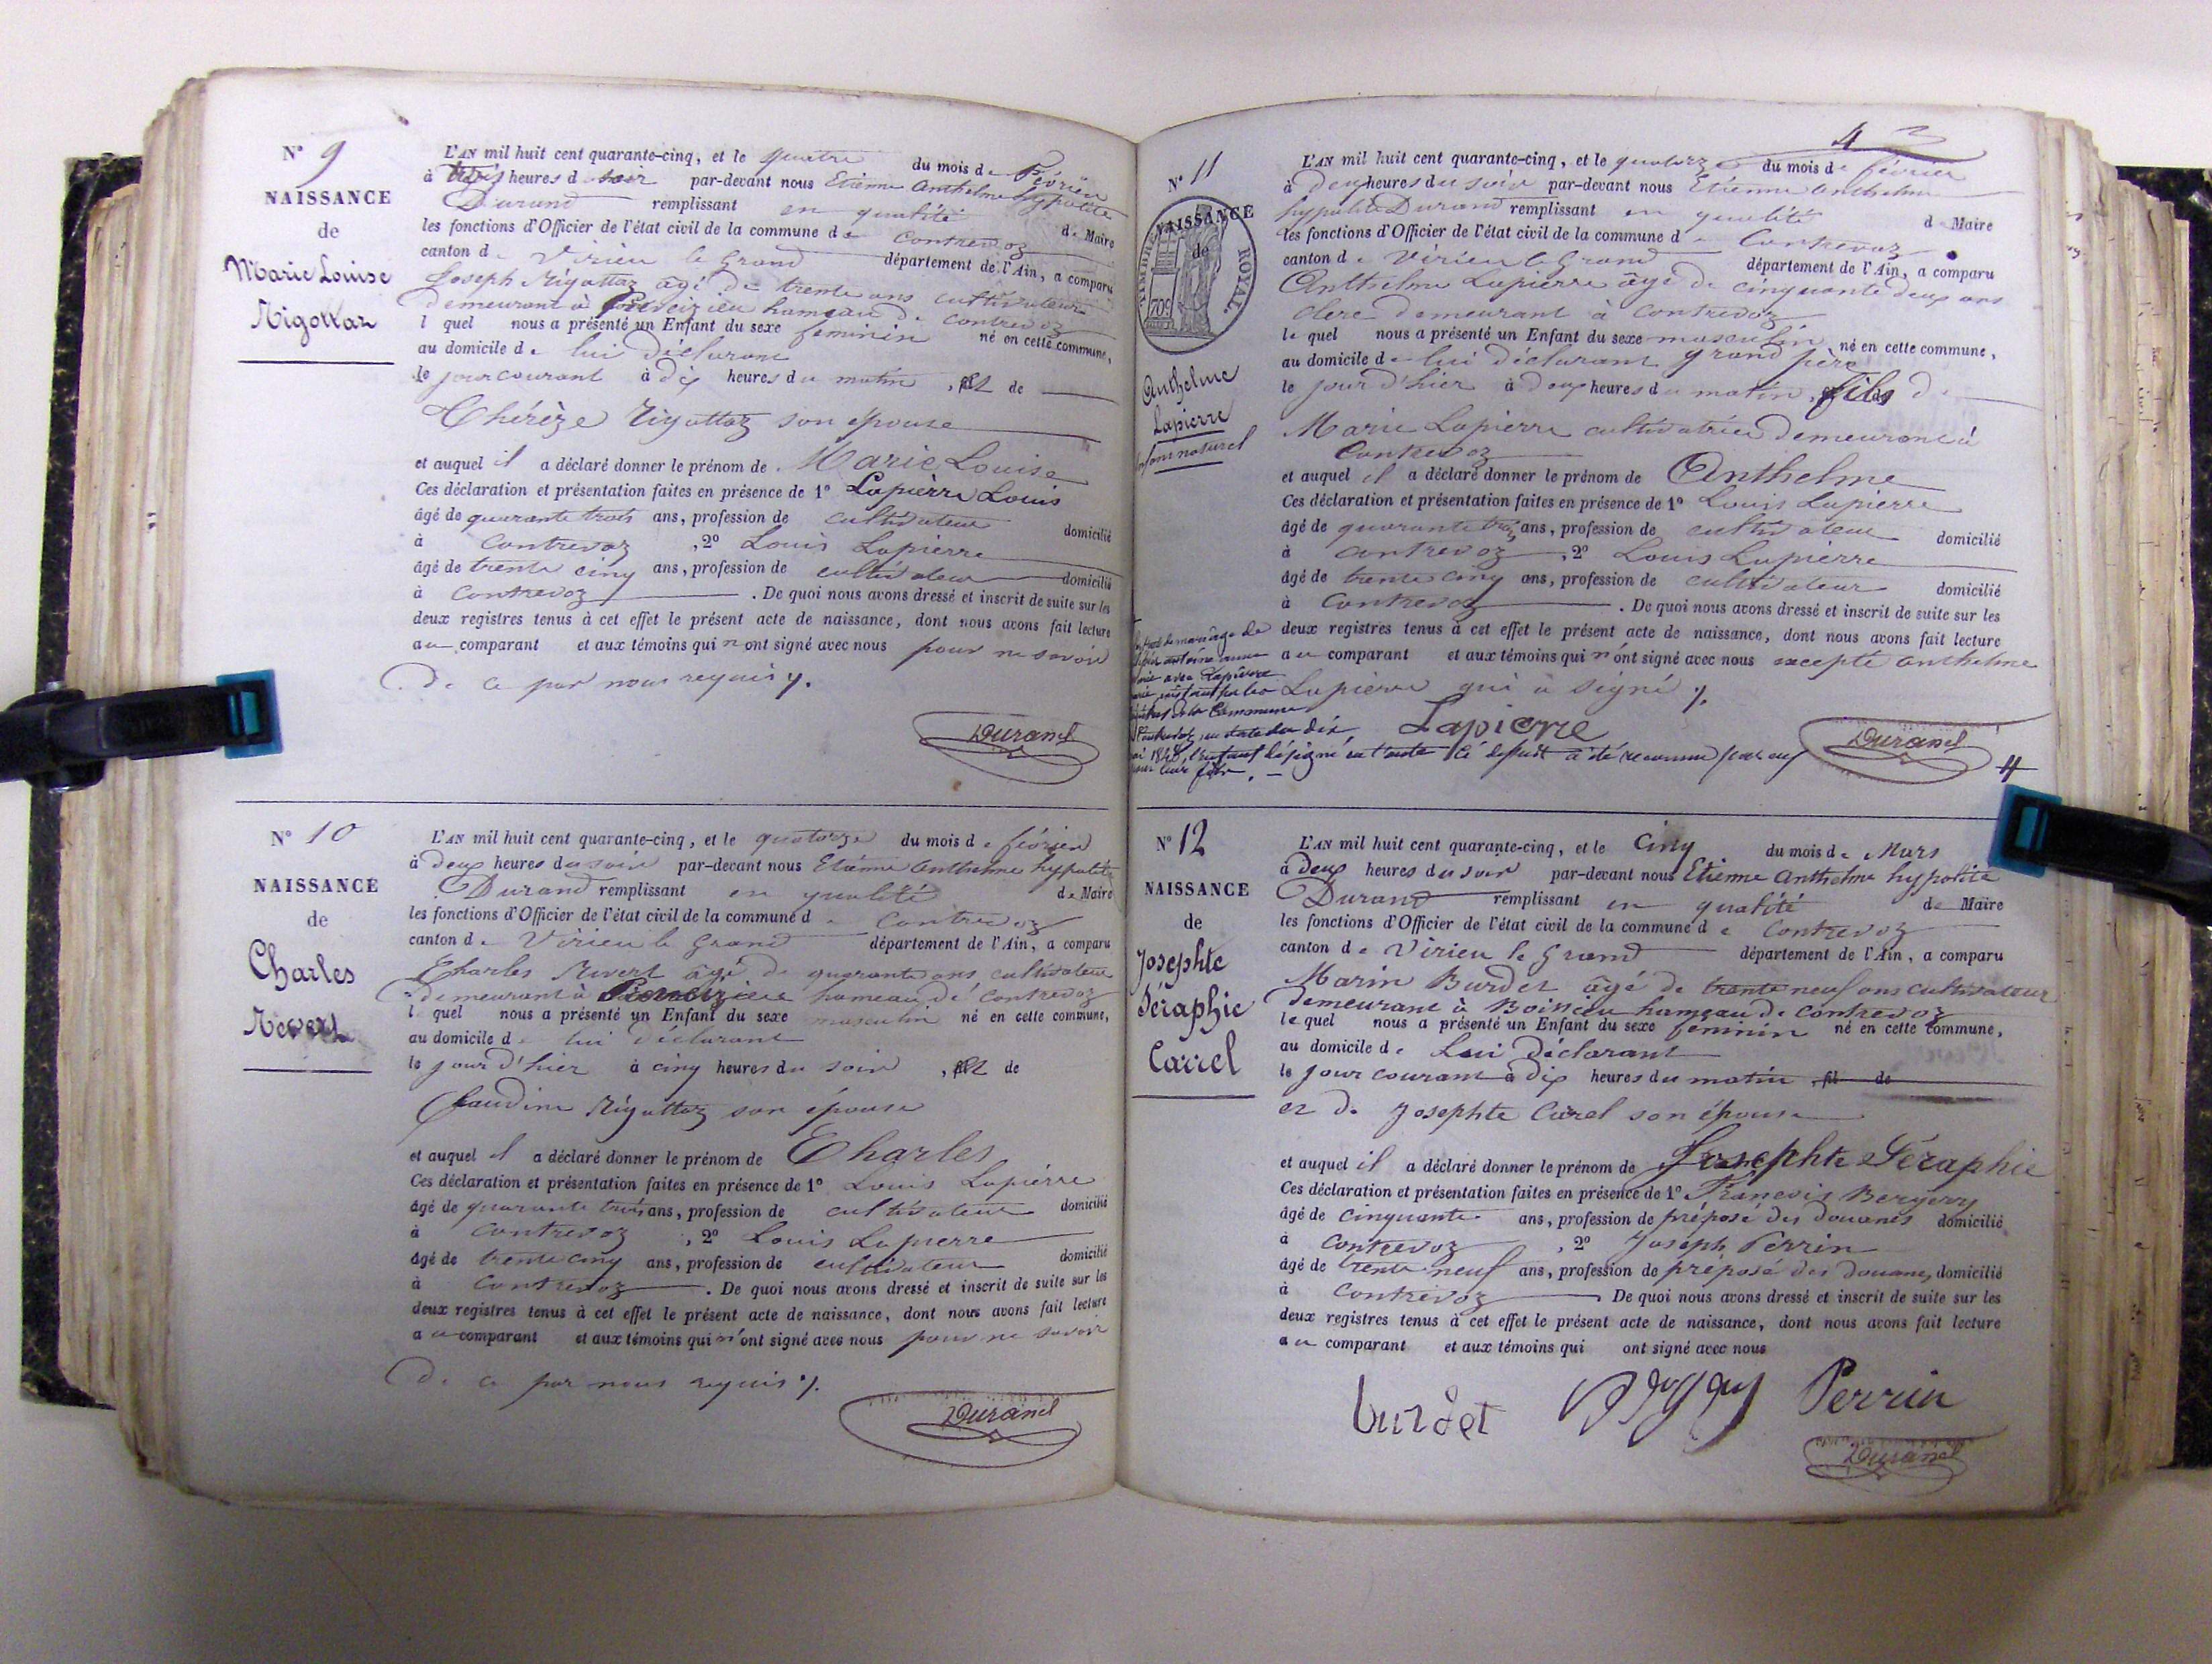 N° 9
NAISSANCE
de
Marie Louise
Rigottaz
L'AN mil huit cent quarante-cinq, et le quatre du mois de Février
à trois heures d soir par-devant nous Etienne Anthelme hypolite
Durand remplissant en qualité de Maire
les fonctions d'Officier de l'état civil de la commune de Contrevoz
canton de Virieu le Grand département de l'Ain, a comparu
Joseph Rigottaz âgé de trente ans cultivateur
demeurant à hameau de Contrevoz
l quel nous a présenté un Enfant du sexe feminin né en cette commune,
au domicile de lui déclarant
le jour courant à dix heures du matin, et de
Thérèze Rigottaz son épouse
et auquel il a déclaré donner le prénom de Marie Louise
Ces déclaration et présentation faites en présence de 1° Lapierre Louis
âgé de quarante trois ans, profession de cultivateur domicilié
à Contrevoz, 2° Louis Lapierre
âgé de trente cinq ans, profession de cultivateur domicilié
à Contrevoz. De quoi nous avons dressé et inscrit de suite sur les
deux registres tenus à cet effet le présent acte de naissance, dont nous avons fait lecture
au comparant et aux témoins qui n'ont signé avec nous pour ne savoir
de ce par nous requis ./.
Durand
N° 10
NAISSANCE
de
Charles
Revert
L'AN mil huit cent quarante-cinq, et le quatorze du mois de février
à deux heures du soir par-devant nous Etienne anthelme hypolite
Durand remplissant en qualité de Maire
les fonctions d'Officier de l'état civil de la commune de Contrevoz
canton de Virieu le Grand département de l'Ain, a comparu
Charles Revert âgé de quarante ans cultivateur
demeurant à hameau de Contrevoz
l quel nous a présenté un Enfant du sexe masculin né en cette commune,
au domicile de lui déclarant
le jour d'hier à cinq heures du soir, et de
Claudine Rigottaz son épouse
et auquel il a déclaré donner le prénom de Charles
Ces déclaration et présentation faites en présence de 1° Louis Lapierre
âgé de quarante trois ans, profession de cultivateur domicilié
à Contrevoz, 2° Louis Lapierre
âgé de trente cinq ans, profession de cultivateur domicilié
à Contrevoz. De quoi nous avons dressé et inscrit de suite sur les
deux registres tenus à cet effet le présent acte de naissance, dont nous avons fait lecture
au comparant et aux témoins qui n'ont signé avec nous pour ne savoir
de ce par nous requis ./.
Durand
4
N° 11
NAISSANCE
de
TIMBRE ROYAL
70c
Anthelme
Lapierre
Enfant naturel
L'AN mil huit cent quarante-cinq, et le quatorze du mois de février
à deux heures du soir par-devant nous Etienne anthelme
hypolite Durand remplissant en qualité de Maire
les fonctions d'Officier de l'état civil de la commune d e Contrevoz
canton de Virieu le Grand département de l'Ain, a comparu
Anthelme Lapierre âgé de cinquante deux ans
clerc demeurant à Contrevoz
le quel nous a présenté un Enfant du sexe masculin né en cette commune,
au domicile de lui déclarant grand père
le jour d'hier à deux heures du matin, fils de
Marie Lapierre cultivatrice demeurant à
Contrevoz
et auquel il a déclaré donner le prénom de Anthelme
Ces déclaration et présentation faites en présence de 1° Louis Lapierre
âgé de quarante trois ans, profession de cultivateur domicilié
à Contrevoz, 2° Louis Lapierre
âgé de trente cinq ans, profession de cultivateur domicilié
à Contrevoz. De quoi nous avons dressé et inscrit de suite sur les
deux registres tenus à cet effet le présent acte de naissance, dont nous avons fait lecture
au comparant et aux témoins qui n'ont signé avec nous excepté anthelme
Lapierre qui a signé ./.
mariage de
antoine
avec Lapierre
de la Commune
Contrevoz, en date du dix
1848, l'enfant désigné en l'acte ci dessus a été reconnu par eux
pour leur fils.
Lapierre
Durand
N° 12
NAISSANCE
de
Josephte
Séraphie
Carrel
L'AN mil huit cent quarante-cinq, et le Cinq du mois de Mars
à deux heures du soir par-devant nous Etienne Anthelme hypolite
Durand remplissant en qualité de Maire
les fonctions d'Officier de l'état civil de la commune d e Contrevoz
canton de Virieu le Grand département de l'Ain, a comparu
Marin Burdet âgé de trente neuf ans cultivateur
demeurant à Boissieu hameau de Contrevoz
le quel nous a présenté un Enfant du sexe feminin né en cette commune,
au domicile de Lui déclarant
le jour courant à dix heures du matin, fil de
et de Josephte Carel son épouse
et auquel il a déclaré donner le prénom de Josephte Séraphie
Ces déclaration et présentation faites en présence de 1° Francois Bergery
âgé de cinquante ans, profession de préposé des douanes domicilié
à Contrevoz, 2° Joseph Perrin
âgé de trente neuf ans, profession de préposé des douanes, domicilié
à Contrevoz De quoi nous avons dressé et inscrit de suite sur les
deux registres tenus à cet effet le présent acte de naissance, dont nous avons fait lecture
au comparant et aux témoins qui ont signé avec nous
burdet Perrin
Durand